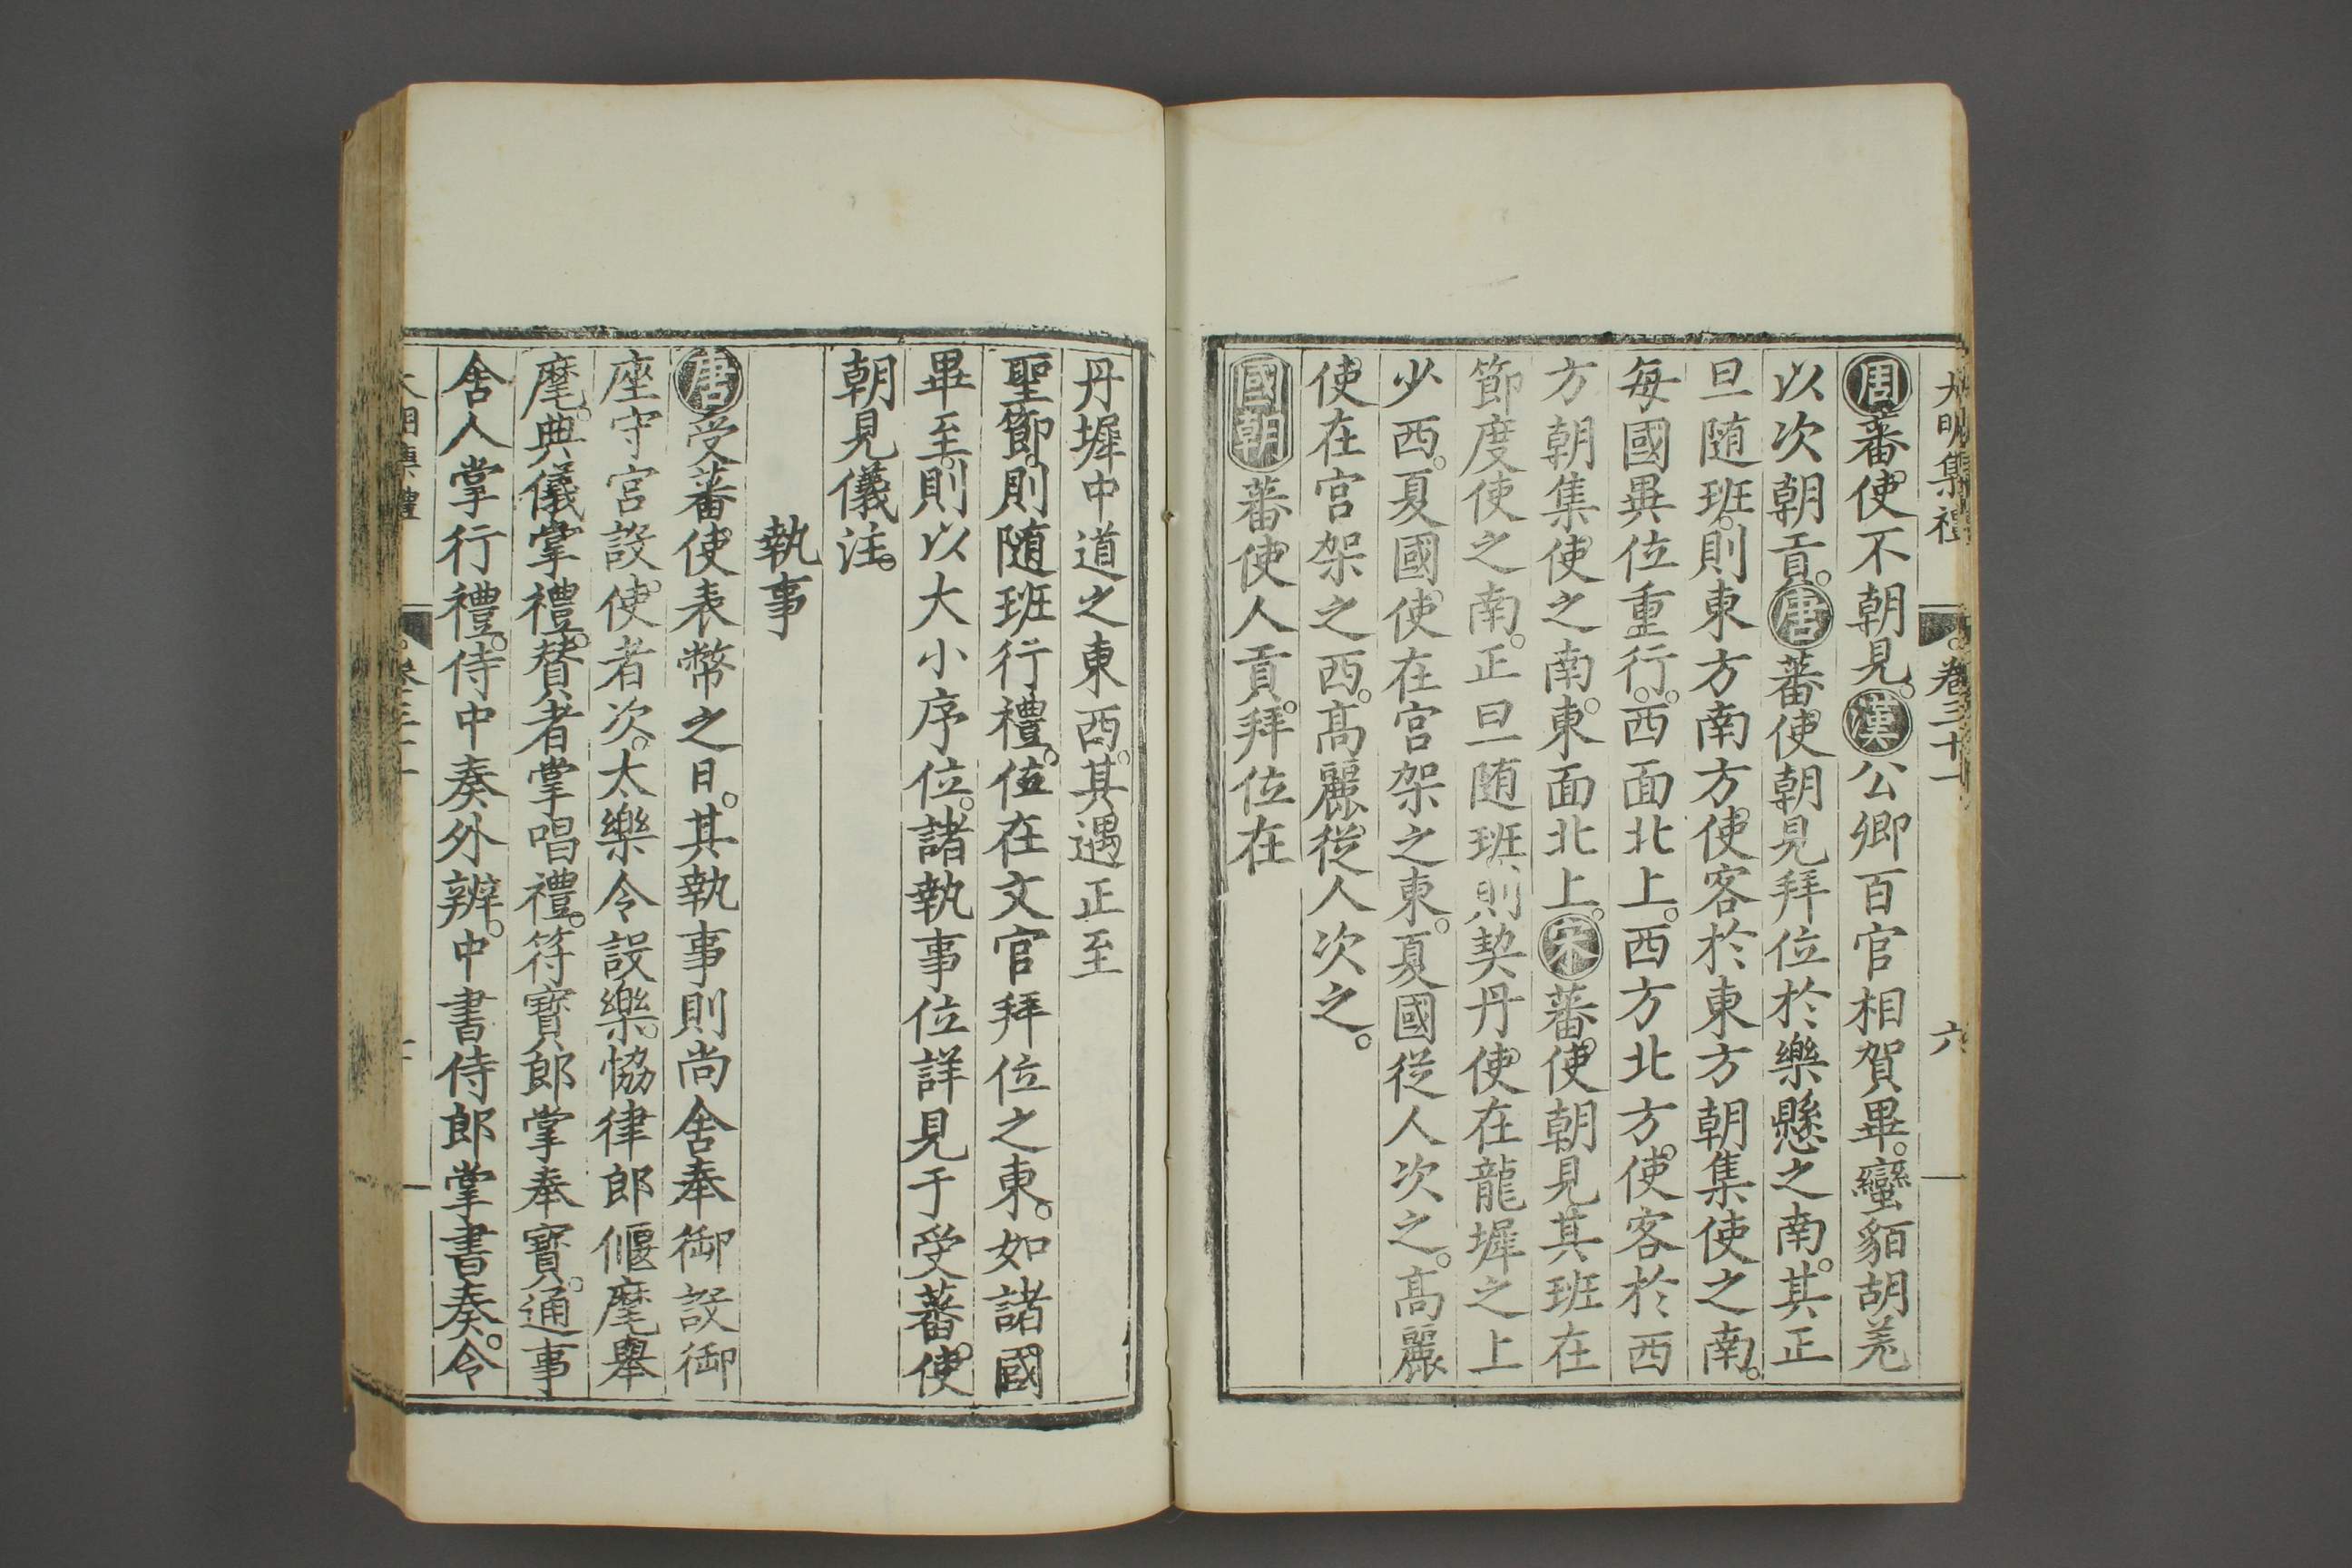 大明集禮
卷三十一
六
周蕃使不朝見。漢公卿百官相賀畢。蠻貊胡羌
以次朝貢。唐蕃使朝見拜位於樂懸之南。其正
旦随班。則東方南方。使客於東方朝集使之南。
每國異位重行。西面北上。西方北方。使客於西
方朝集使之南。東面北上。宋蕃使朝見其班在
節度使之南。正旦随班。則契丹使在龍墀之上
少西。夏國使在宮架之東。夏國從人次之。高麗
使在宮架之西。高麗從人次之。
國朝蕃使人貢。拜位在
丹墀中道之東西。其遇正至
聖節。則随班行禮。位在文官拜位之東。如諸國
畢至。則以大小序位。諸執事位詳見于受蕃使
朝見儀注。
執事
唐受蕃使表幣之日。其執事則尚舍奉御設御
座守宮設使者次。太樂令設樂。恊律郎偃麾舉
麾。典儀掌禮。賛者掌唱禮。符寳郎掌奉寳。通事
舍人掌行禮。侍中奏外辨。中書侍郎掌書奏。令